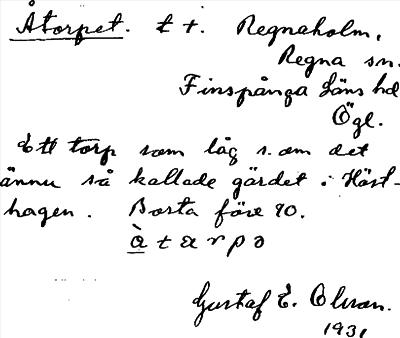 Åtorpet. t t. Regnaholm,
Regna sn.
Finspånga Läns hd
Ögl.
Ett torp som låg s. om det
ännu så kallade gärdet i Häst-
hagen. Borta före 90.
à t a r p ə
Gustaf E. Olsson.
1931